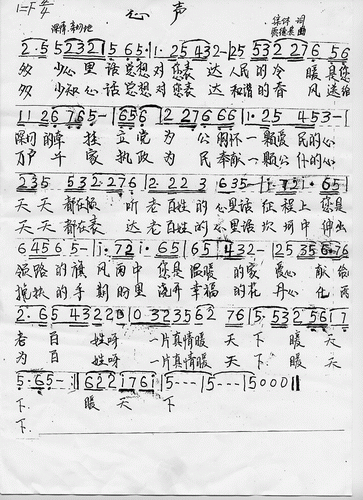 心声
1=F 2/4
深情、亲切地
词
曲
2·55232|565·|1·25432-|255322765 6
多少心里话想对您表达人民的冷暖是您
多少知心话想对您表达和谐的春风送给
112676 5-|656|2276 66|1·25453-|
深切的牵挂立党为公胸怀一颗爱民的心
万户千家执政为民奉献一颗公仆的心
235 532·276|2·2223|635-|i·72i·65|
天天都在听老百姓的心里话征程上您是
天天都在表达老百姓的心里话坎坷中伸出
64565-|i·72i·65|65432-|25532567 6|
领路的旗风雨中您是温暖的家爱心献给
搀扶的手浇开幸福的花丹心化雨
2·6543220|0323562 76|5·5325617|
老百姓呀一片真情暖天下暖天
为百姓呀一片真情暖天下暖天
5·65-:||622176i|5---|5---|5000||
下. 暖天下
下.